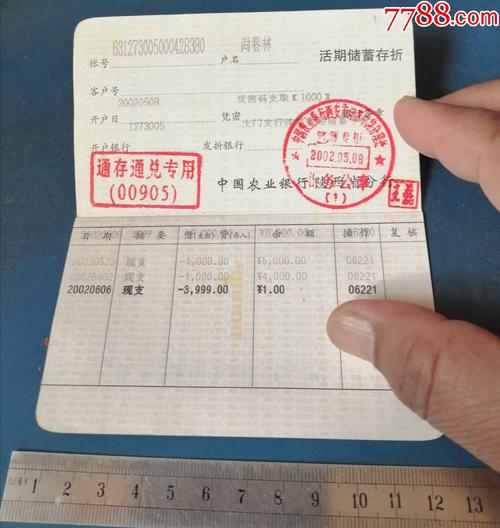 7788.com
631273005000428380 尚春林
帐号 户名 活期储蓄存折
客户号 凭密码支取【1000】
20020508
开户日 1273005 凭密
开户银行 发折银行
通存通兑专用
(00905)
储蓄专用
2002.05.08
业务公章
(1)
中国农业银行陕西省分行
日期 摘要 借(支出)贷(存入) 余额 操作 复核
20020523 现支 -1,000.00 ¥5,000.00 06221
20020602 现支 -1,000.00 ¥4,000.00 06221
20020606 现支 -3,999.00 ¥1.00 06221
1 2 3 4 5 6 7 8 9 10 11 12 13